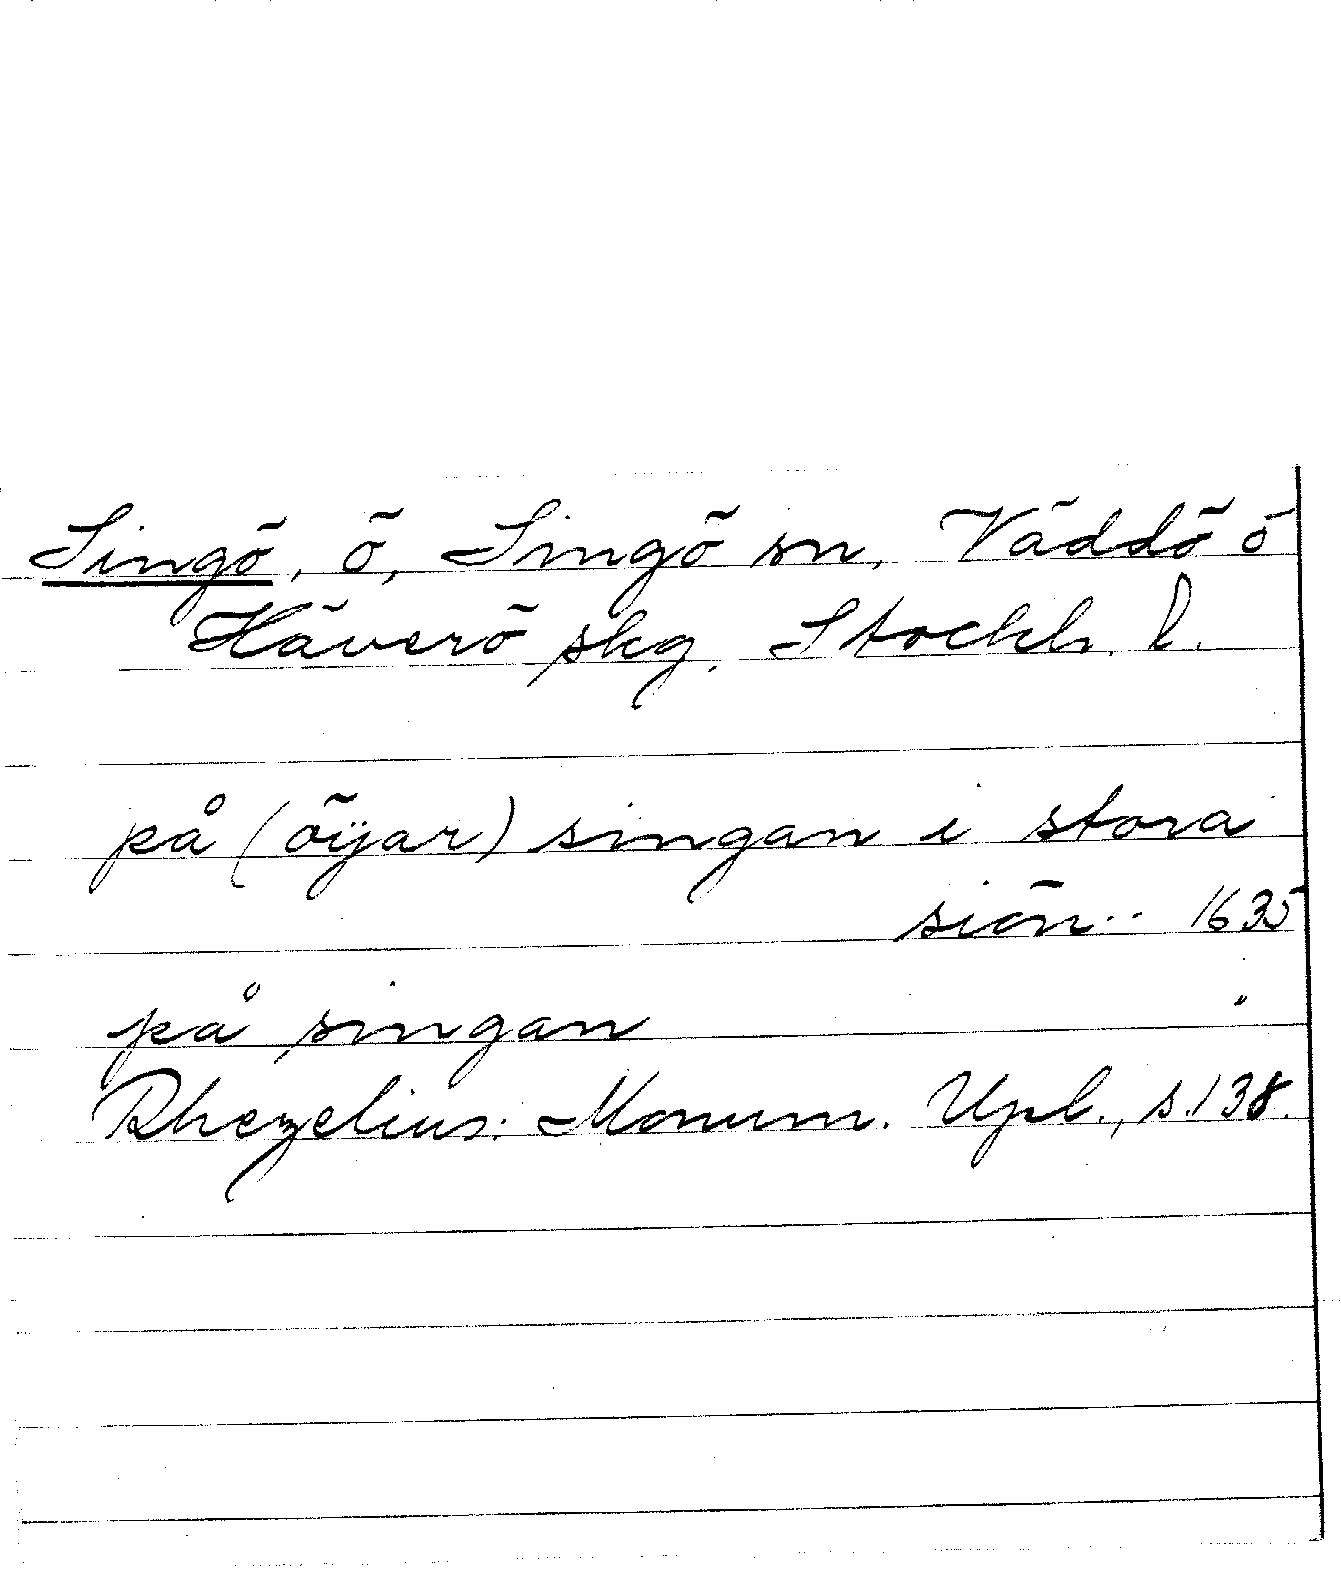 Singö, ö, Singö sn, Väddö o
Häverö skg, Stockh. l.
på (öÿar) singan i stora
siön.. 1635
på singan "
Rhezelius: Monum. Upl., s.138.